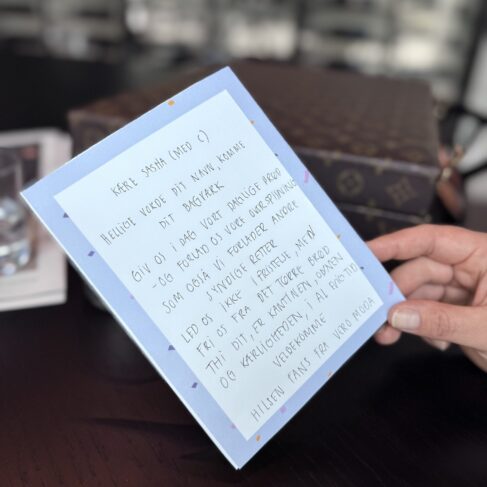 KÆRE SASHA (MED C)
HELLIGE VORDE DIT NAVN, KOMME
DIT BAGPARK
GIV OS I DAG VORT DAGLIGE BRØD
-OG FORLAD OS VORE OVERSPISNING
SOM OGSA VI FORLADER ANDRE
SYNDIGE RETTER
LED OS IKKE I FRISTELSE, MEN
FRI OS FRA DET TØRRE BRØD
THI DIT, ER KANTINEN, OVNEN
OG KÆRLIGHEDEN, I AL EVIGTID
VELBEKOMME
HILSEN FANS FRA VERO MODA